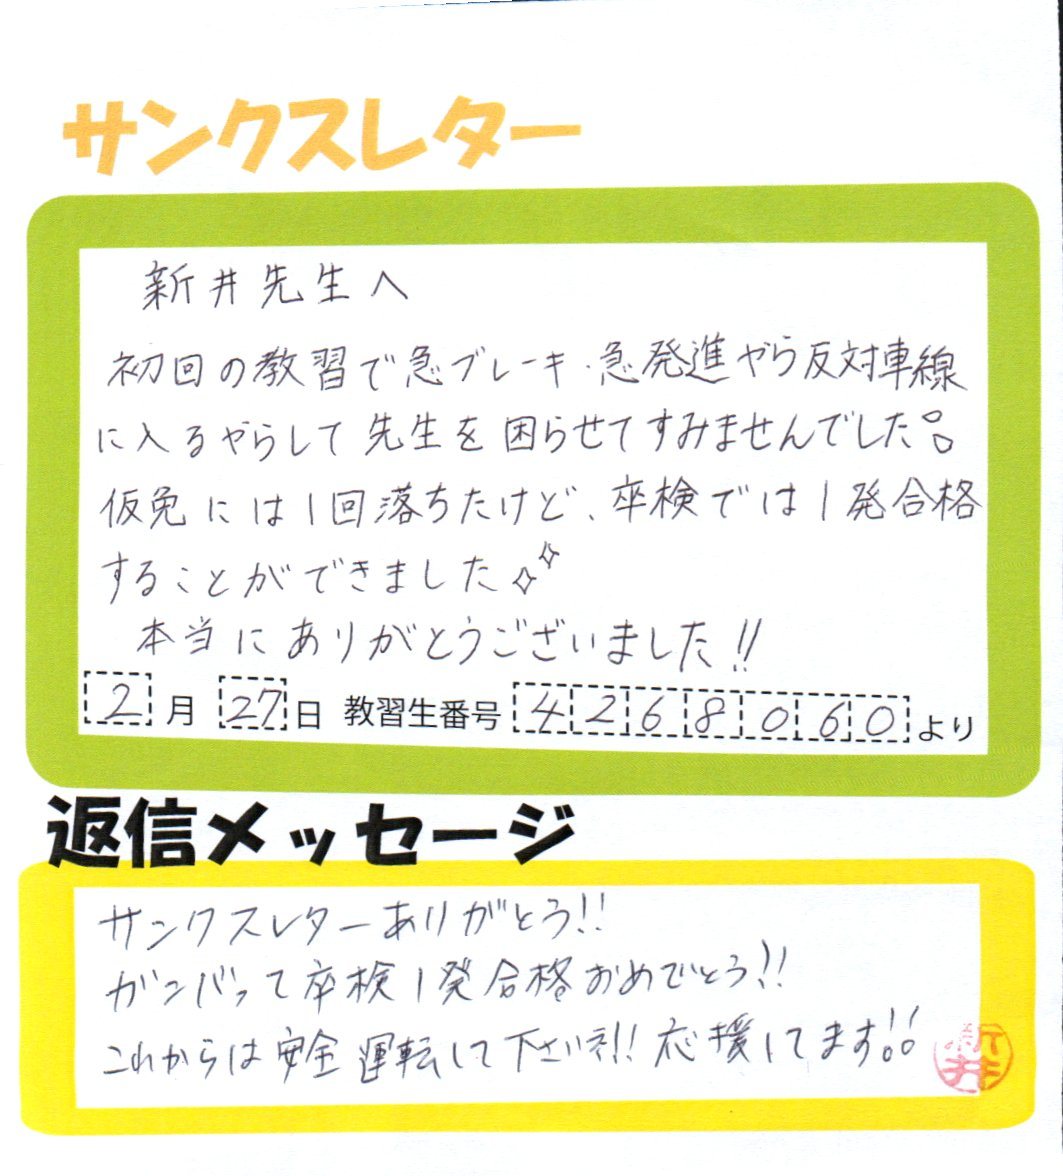 サンクスレター
新井先生へ
初回の教習で急ブレーキ・急発進やら反対車線
に入るやらして先生を困らせてすみませんでした。
仮免には1回落ちたけど、卒検では1発合格
することができました
本当にありがとうございました!!
2月27日 教習生番号 4268060より
返信メッセージ
サンクスレターありがとう!!
ガンバって卒検1発合格おめでとう!!
これからは安全運転して下さいネ!! 応援してます!!
新井